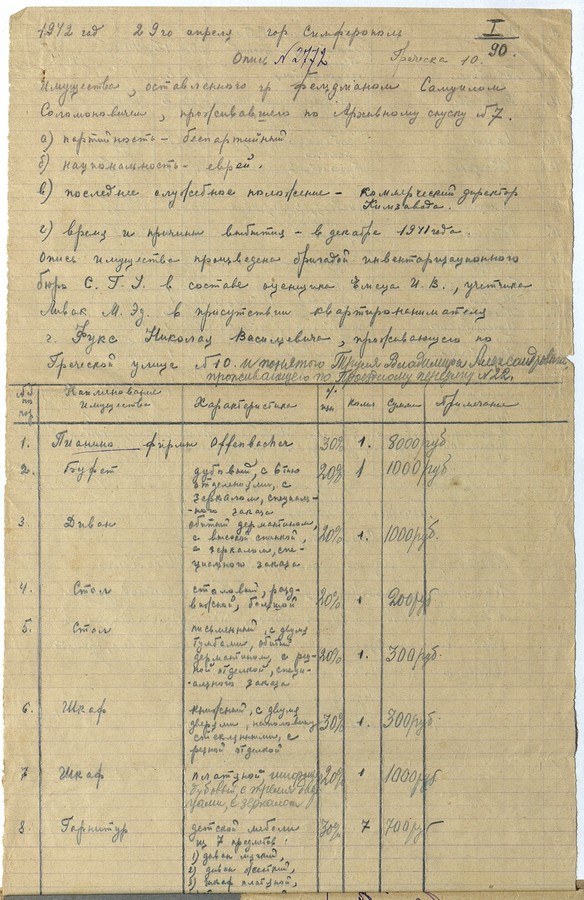 1942 год 29го апреля гор Симферополь
I
90.
Опись № 2772 Греческа 10.
Имущества, оставленного гр. Фельдманом Самуилом
Соломоновичем, проживавшего по Архивному спуску № 7.
а) партийность - беспартийный
б) национальность - еврей.
в) последнее служебное положение - коммерческий директор
Химзавода.
г) время и причины выбытия - в декабре 1941 года.
Опись имущества произведена бригадой инвентаризационного
бюро С. Г. У. в составе оценщика Емеца И. В., учетчика
Ливак М. Эд. в присутствии квартиронанимателя
г. Фукс Николая Васильевича, проживающего по
Греческой улице № 10. и понятого Владимира Александровича
проживающего по переулку № 22.
№№ по пор. Наименование Имущества Характеристика % колич Сумма Примечание
1. Пианино фирмы Offenbacher 30% 1. 8000 руб
2. Буфет дубовый с 6тью 20% 1 1000 руб
отделениями, с
зеркалом, специаль-
ного заказа
3. Диван обитый дермантином, 20% 1. 1000 руб.
с высокой спинкой,
с зеркалом, спе-
циального заказа
4. Стол столовый, разд- 20% 1 200 руб
вижной, большой
5. Стол письменный, с двумя 20% 1. 300 руб.
тумбами, обитый
дермантином, с рез-
ной отделкой, специ-
ального заказа
6. Шкаф книжный, с двумя 30% 1. 300 руб.
дверями, наполовину
стеклянными, с
резной отделкой
7 Шкаф платяной 20% 1 1000 руб
дубовый, с тремя две-
рцами, с зеркалом
8. Гарнитур детской мебели 30% 7 700 руб
из 7 предметов:
1) диван мягкий,
2) диван жесткий,
3) шкаф платяной,